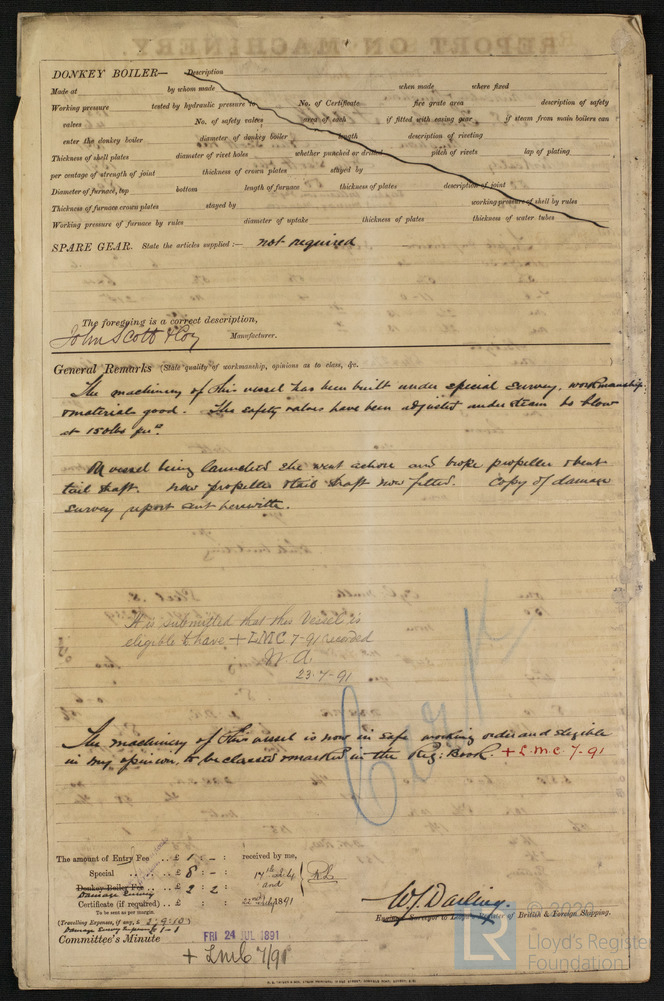 DONKEY BOILER— Description
Made at by whom made when made where fixed
Working pressure tested by hydraulic pressure to No. of Certificate fire grate area description of safety
valves No. of safety valves area of each if fitted with easing gear if steam from main boilers can
enter the donkey boiler diameter of donkey boiler length description of riveting
Thickness of shell plates diameter of rivet holes whether punched or drilled pitch of rivets lap of plating
per centage of strength of joint thickness of crown plates stayed by
Diameter of furnace, top bottom length of furnace thickness of plates description of joint
Thickness of furnace crown plates stayed by working pressure of shell by rules
Working pressure of furnace by rules diameter of uptake thickness of plates thickness of water tubes
SPARE GEAR. State the articles supplied:— not required
The foregoing is a correct description,
John Scott & Coy Manufacturer.
General Remarks (State quality of workmanship, opinions as to class, &c.
The machinery of this vessel has been built under special survey. workmanship
& materials good. The safety valves have been adjusted under steam to blow
at 150 lbs per □"
vessel being launched she went ashore and broke propeller & bent
tail shaft. new propeller & tail shaft now fitted. Copy of damage
survey report sent herewith.
It is submitted that this Vessel is
eligible to have + LMC 7-91 recorded
23.7-91
The machinery of this vessel is now in safe working order and eligible
in my opinion, to be classed & marked in the Reg: Book. + L.M.C. 7-91
The amount of Entry Fee £ 1 - : received by me,
Special £ 8 - :
Donkey Boiler Fee £ 2 : 2 :
Damage Survey
Certificate (if required) £ : : 1891
To be sent as per margin.
(Travelling Expenses, if any, £
W. J. Darling.
Engineer Surveyor to Lloyd's Register of British & Foreign Shipping.
Committee's Minute FRI 24 JUL 1891
+ LMC 7/91
© 2020
LR
Lloyd's Register
Foundation